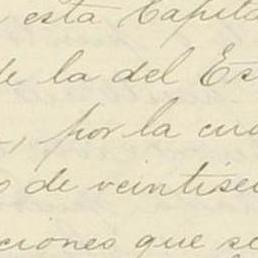 esta Capita
de la del Es
, por la cua
o de veintisei
ciones que se